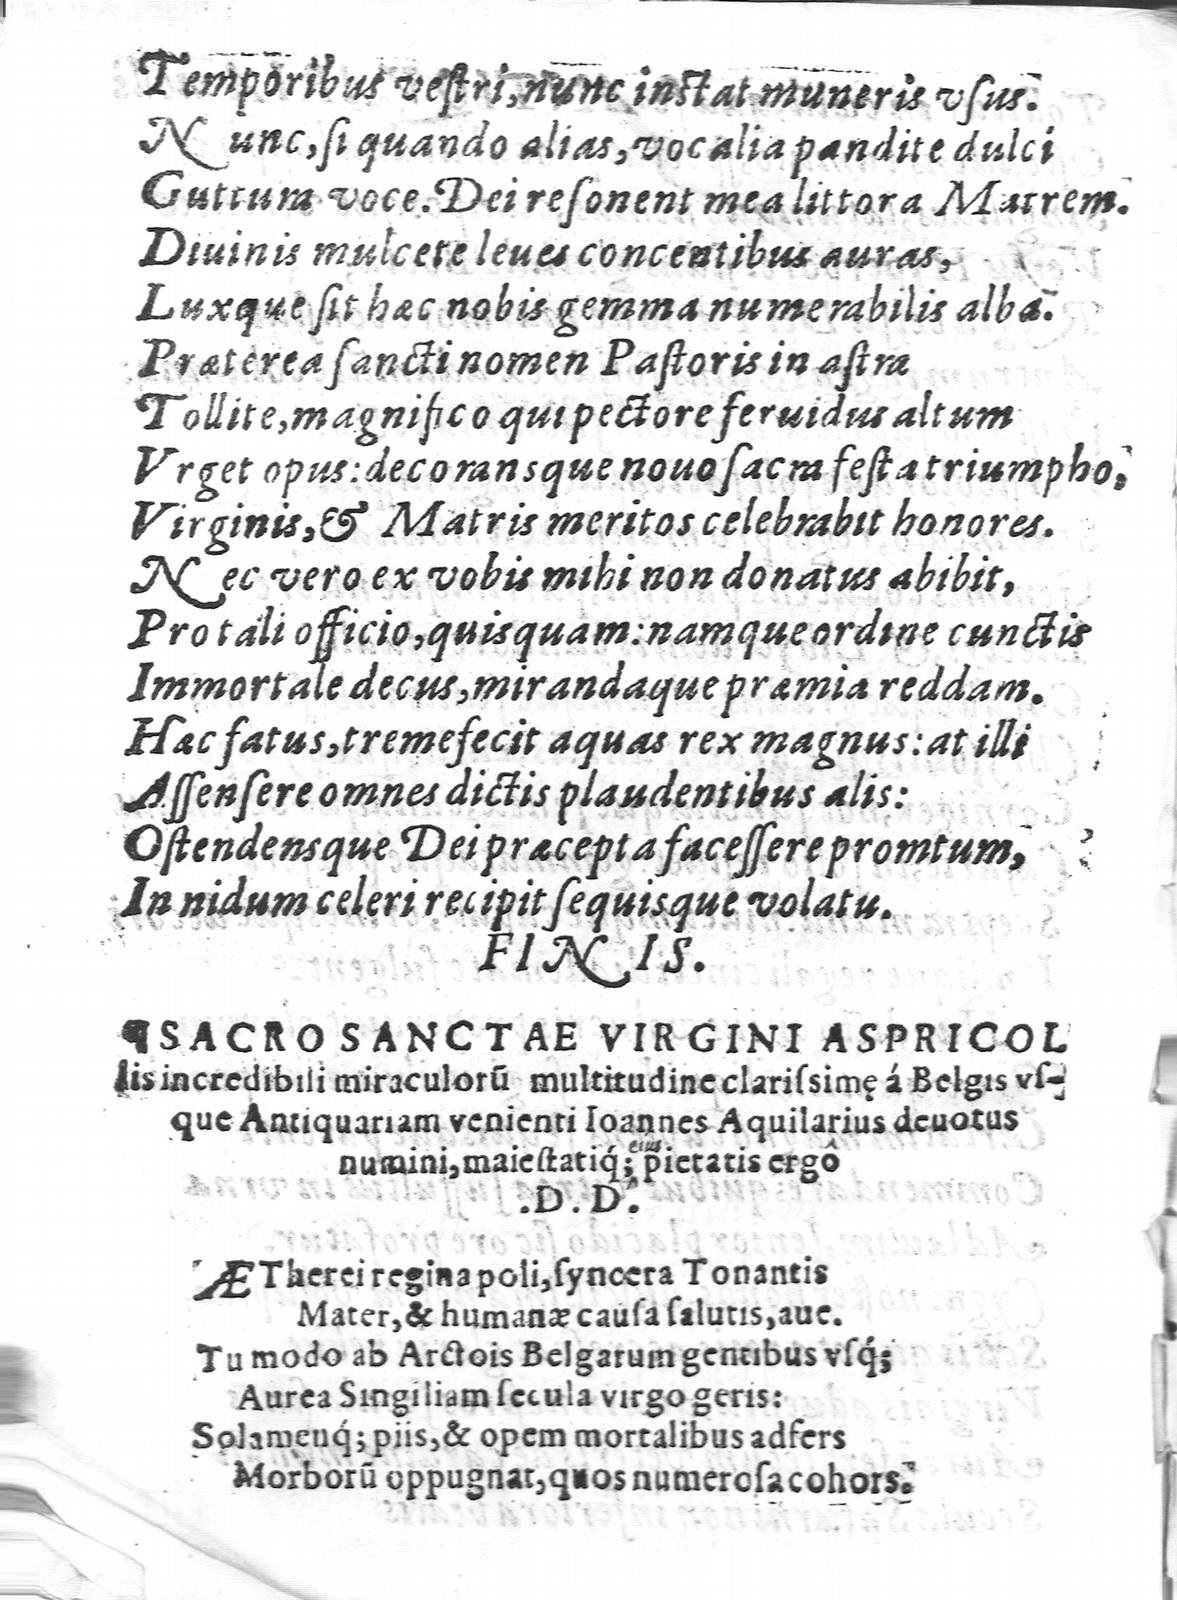 Temporibus veſtri, nunc inſtat muneris vſus.
Nunc, ſi quando alias, vocalia pandite dulci
Guttura voce. Dei reſonent mea littora Matrem.
Diuinis mulcete leues concentibus auras,
Luxque ſit hæc nobis gemma numerabilis alba.
Præterea ſancti nomen Paſtoris in aſtra
Tollite, magnifico qui pectore feruidus altum
Vrget opus: decoransque nouo ſacra feſta triumpho,
Virginis, & Matris meritos celebrabit honores.
Nec vero ex vobis mihi non donatus abibit,
Pro tali officio, quisquam: namque ordine cunctis
Immortale decus, mirandaque præmia reddam.
Hæc fatus, tremefecit aquas rex magnus: at illi
Aſſenſere omnes dictis plaudentibus alis:
Oſtendensque Dei præcepta faceſſere promtum,
In nidum celeri recipit ſe quisque volatu.
FINIS.
¶ SACROSANCTAE VIRGINI ASPRICOL
lis incredibili miraculorũ multitudine clariſsimę á Belgis vſ-
que Antiquariam venienti Ioannes Aquilarius deuotus
numini, maieſtatiq́; eius pietatis ergô
.D.D.
ÆTherei regina poli, ſyncera Tonantis
Mater, & humanæ cauſa ſalutis, aue.
Tu modo ab Arctois Belgarum gentibus vſq́;
Aurea Singiliam ſecula virgo geris:
Solamenq́; piis, & opem mortalibus adfers
Morborũ oppugnat, quos numeroſa cohors.